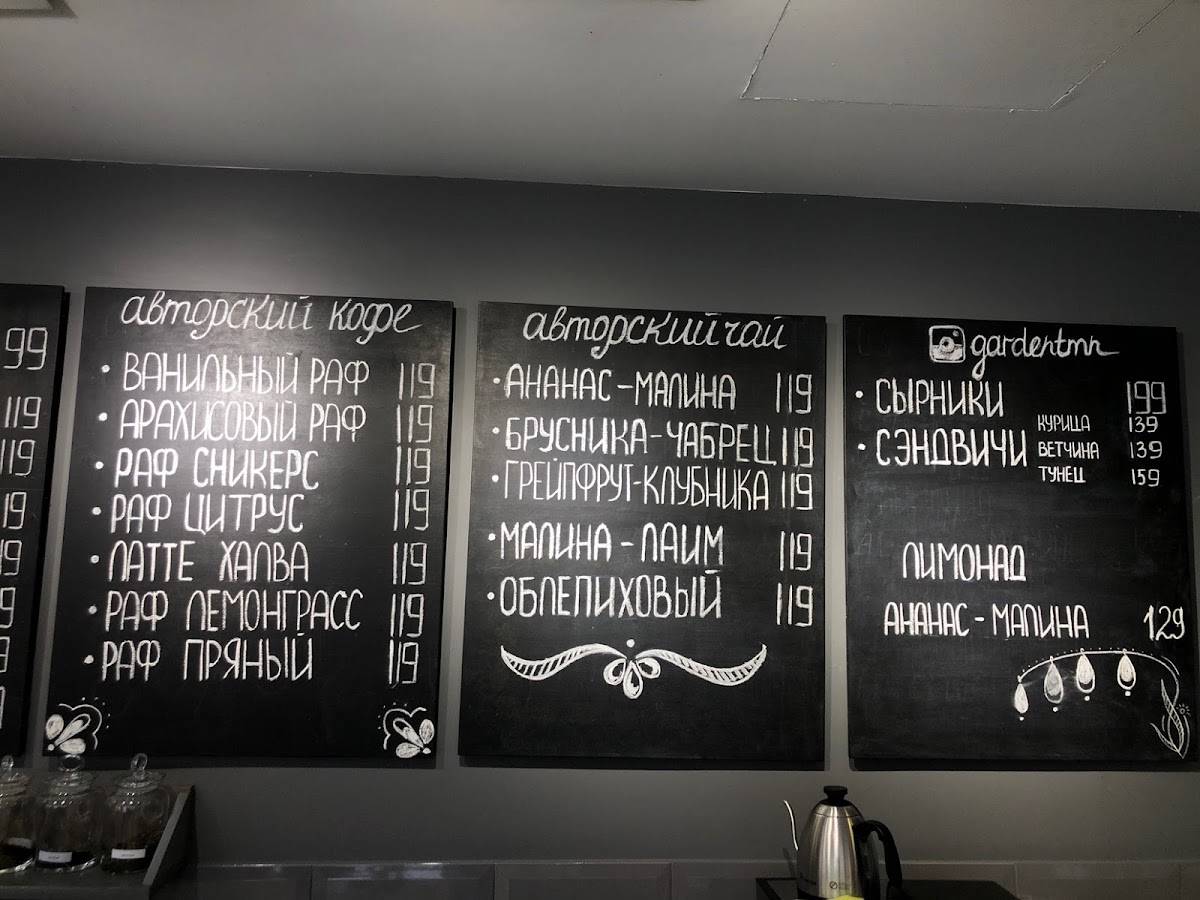 99
119
119
19
19
9
авторский кофе
• ВАНИЛЬНЫЙ РАФ 119
• АРАХИСОВЫЙ РАФ 119
• РАФ СНИКЕРС 119
• РАФ ЦИТРУС 119
• ЛАТТЕ ХАЛВА 119
• РАФ ЛЕМОНГРАСС 119
• РАФ ПРЯНЫЙ 119
авторский чай
• АНАНАС - МАЛИНА 119
• БРУСНИКА - ЧАБРЕЦ 119
• ГРЕЙПФРУТ - КЛУБНИКА 119
• МАЛИНА - ЛАЙМ 119
• ОБЛЕПИХОВЫЙ 119
gardentmn
• СЫРНИКИ 199
КУРИЦА 139
• СЭНДВИЧИ ВЕТЧИНА 139
ТУНЕЦ 159
ЛИМОНАД
АНАНАС - МАЛИНА 129